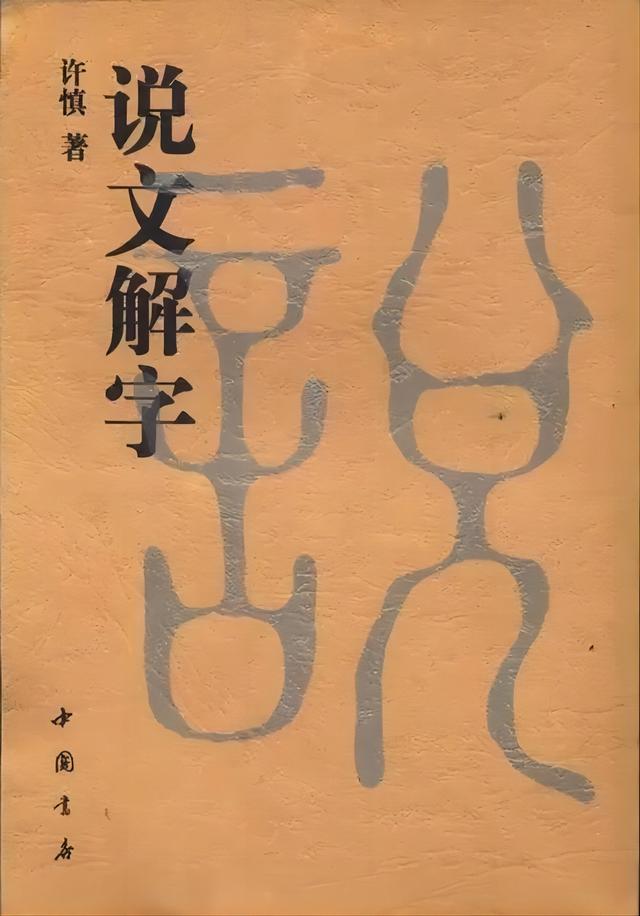 许慎 著
说文解字
說
中国书店